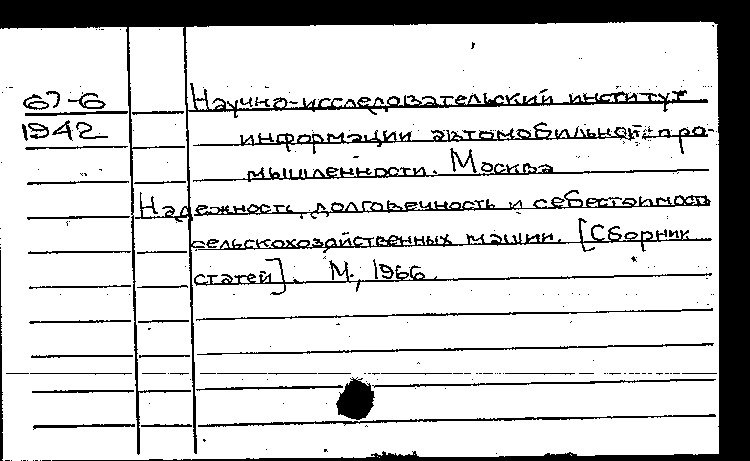 67-6 Научно-исследовательский институт
1942 информации автомобильной про-
мышленности. Москва
Надежность, долговечность и себестоимость
сельскохозяйственных машин. [Сборник
статей]. М., 1966.